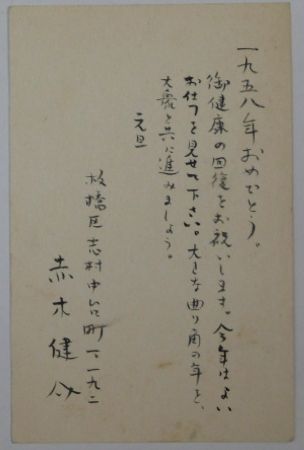 一九五八年おめでとう。
御健康の回復をお祝いします。今年はよい
お仕事を見せて下さい。大きな曲り角の年を、
大衆と共に進みましょう。
元旦
板橋区志村中台町一一九二
赤木健介